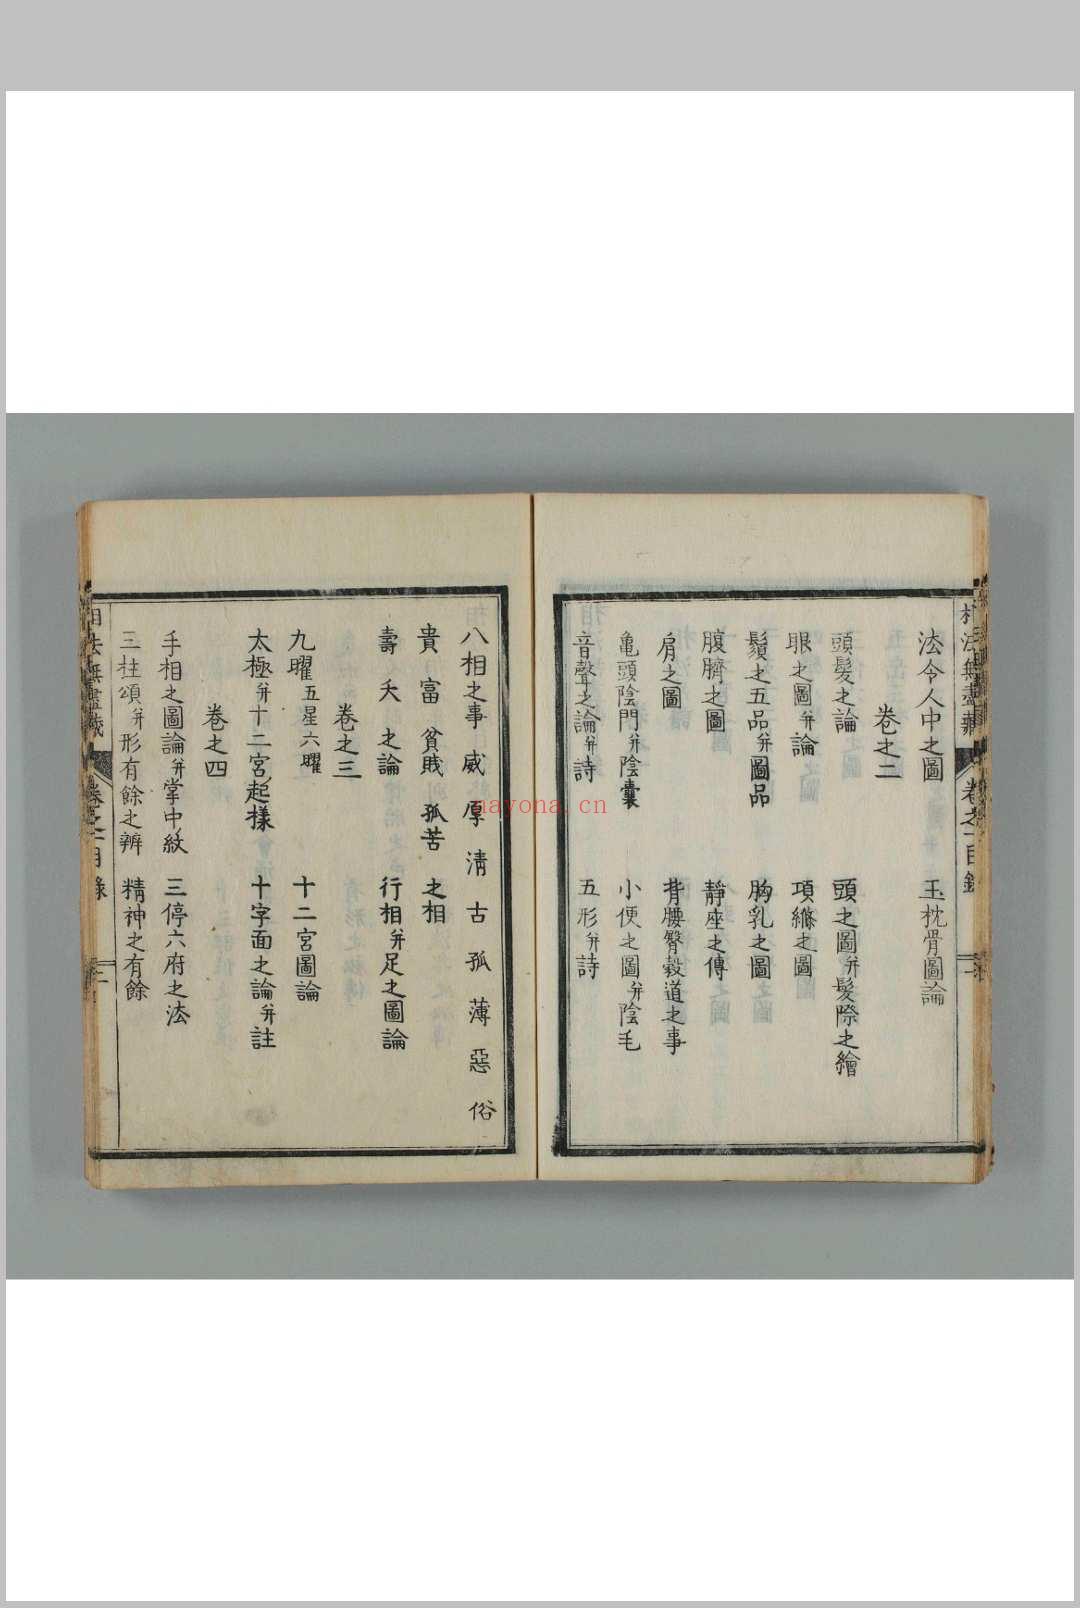 法令人中之圖　玉枕骨圖論
卷之二
頭髮之論　頭之圖并髮際之繪
眼之圖并論　項絛之圖
鬚之五品并圖品　胸乳之圖
腹臍之圖　靜座之傳
肩之圖　背腰臀穀道之事
亀頭陰門并陰囊　小便之圖并陰毛
音聲之論并詩　五形并詩
八相之事　威　厚　清　古　孤　薄　惡　俗
貴　富　貧賎　孤苦　之相
壽　夭　之論　行相并足之圖論
卷之三
九曜五星六曜　十二宮圖論
太極并十二宮起様　十字面之論并註
卷之四
手相之圖論并掌中紋　三停六府之法
三柱頌并形有餘之辨　精神之有餘
相法無盡藏　卷之一目錄　二
nayona.cn